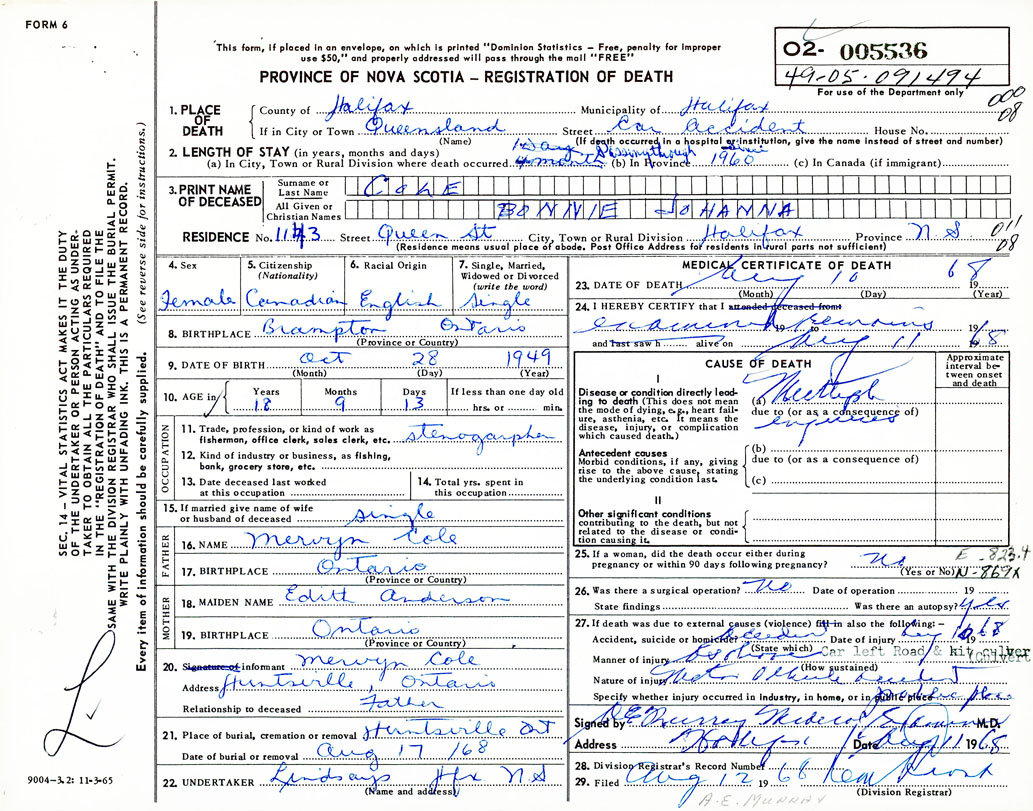 FORM 6
This form, if placed in an envelope, on which is printed "Dominion Statistics – Free, penalty for improper
use $50," and properly addressed will pass through the mail "FREE"
PROVINCE OF NOVA SCOTIA – REGISTRATION OF DEATH
O2- 005536
49-05-091494
For use of the Department only
000
08
1. PLACE OF DEATH
County of Halifax Municipality of Halifax
If in City or Town Queensland Street Car accident House No.
(Name) (If death occurred in a hospital or institution, give the name instead of street and number)
2. LENGTH OF STAY (in years, months and days)
(a) In City, Town or Rural Division where death occurred (b) In Province since 1960 (c) In Canada (if immigrant)
3. PRINT NAME OF DECEASED
Surname or Last Name COLE
All Given or Christian Names BONNIE JOHANNA
RESIDENCE No. 1143 Street Queen St City, Town or Rural Division Halifax Province N S
(Residence means usual place of abode. Post Office Address for residents in rural parts not sufficient)
011
08
4. Sex Female
5. Citizenship (Nationality) Canadian
6. Racial Origin English
7. Single, Married, Widowed or Divorced (write the word) Single
8. BIRTHPLACE Brampton Ontario
(Province or Country)
9. DATE OF BIRTH Oct 28 1949
(Month) (Day) (Year)
10. AGE in Years 18 Months 9 Days 13 If less than one day old hrs. or min.
OCCUPATION
11. Trade, profession, or kind of work as
fisherman, office clerk, sales clerk, etc. stenogarpher
12. Kind of industry or business, as fishing,
bank, grocery store, etc.
13. Date deceased last worked
at this occupation
14. Total yrs. spent in
this occupation
15. If married give name of wife
or husband of deceased single
FATHER
16. NAME Merwyn Cole
17. BIRTHPLACE Ontario
(Province or Country)
MOTHER
18. MAIDEN NAME Edith Anderson
19. BIRTHPLACE Ontario
(Province or Country)
20. Signature of informant Merwyn Cole
Address Huntsville, Ontario
Relationship to deceased Father
21. Place of burial, cremation or removal Huntsville Ont
Date of burial or removal Aug 17 /68
22. UNDERTAKER Lindsays Hfx N S
(Name and address)
MEDICAL CERTIFICATE OF DEATH
23. DATE OF DEATH Aug 10 1968
(Month) (Day) (Year)
24. I HEREBY CERTIFY that I attended deceased from
examined 19 to remains 19
and last saw h alive on Aug 11 1968
CAUSE OF DEATH
Approximate interval between onset and death
I
Disease or condition directly leading to death (This does not mean
the mode of dying, e.g., heart failure, asthenia, etc. it means the
disease, injury, or complication
which caused death.)
(a) Multiple
due to (or as a consequence of)
injuries
Antecedent causes
Morbid conditions, if any, giving
rise to the above cause, stating
the underlying condition last.
(b)
due to (or as a consequence of)
(c)
II
Other significant conditions
contributing to the death, but not
related to the disease or condition causing it.
25. If a woman, did the death occur either during
pregnancy or within 90 days following pregnancy? No
(Yes or No)
E - 823.4
N-869X
26. Was there a surgical operation? No Date of operation 19
State findings Was there an autopsy? Yes
27. If death was due to external causes (violence) fill in also the following: –
Accident, suicide or homicide? Accident Date of injury Aug 10 1968
(State which)
Manner of injury Car left Road & hit culver
(Culvert
(How sustained)
Nature of injury Motor Vehicle accident
Specify whether injury occurred in industry, in home, or in public place public place
Signed by Murray Medical Examiner M.D.
Address Halifax Date Aug 11 1968
28. Division Registrar's Record Number
29. Filed Aug 12 1968
(Division Registrar)
A.E. MURRAY
SEC. 14 – VITAL STATISTICS ACT MAKES IT THE DUTY
OF THE UNDERTAKER OR PERSON ACTING AS UNDERTAKER TO OBTAIN ALL THE PARTICULARS REQUIRED
IN THE "REGISTRATION OF DEATH" AND TO FILE THE
SAME WITH THE DIVISION REGISTRAR WHO SHALL ISSUE THE BURIAL PERMIT.
WRITE PLAINLY WITH UNFADING INK. THIS IS A PERMANENT RECORD.
Every item of information should be carefully supplied. (See reverse side for instructions.)
9004-3.2: 11-3-65